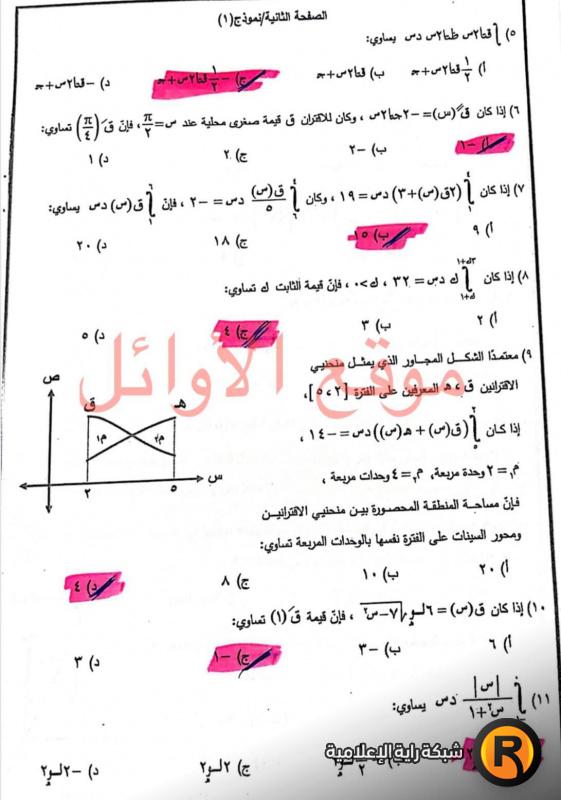 الصفحة الثانية/نموذج(١)
٥) ∫ قتا٢س ظتا٢س دس يساوي:
أ) ١/٢ قتا٢س+جـ ب) قتا٢س+جـ ج) -١/٢ قتا٢س+جـ د) -قتا٢س+جـ
٦) إذا كان قَ(س)=-٢جتا٢س ، وكان للاقتران ق قيمة صغرى محلية عند س=π/٢، فإنّ قَ(π/٤) تساوي:
أ) -١ ب) -٢ ج) ٢ د) ١
٧) إذا كان ∫ (٢ق(س)+٣) دس= ١٩ ، وكان ∫ ق(س)/٥ دس= -٢ ، فإنّ ∫ ق(س) دس يساوي:
أ) ٩ ب) ١٥ ج) ١٨ د) ٢٠
٨) إذا كان ∫ ك دس= ٣٢ ، ك>٠، فإنّ قيمة الثابت ك تساوي:
أ) ٢ ب) ٣ ج) ٤ د) ٥
٩) معتمدًا الشكل المجاور الذي يمثل منحنيي
الاقترانين ق، هـ المعرفين على الفترة [٢، ٥]،
إذا كان ∫ (ق(س) + هـ(س)) دس= -١٤ ،
م١= ٢ وحدة مربعة، م٢= ٤ وحدات مربعة ،
فإنّ مساحة المنطقة المحصورة بين منحنيي الاقترانين
ومحور السينات على الفترة نفسها بالوحدات المربعة تساوي:
ص
ق
هـ
م١
م٢
س
٢
٥
أ) ٢٠ ب) ١٠ ج) ٨ د) ٤
١٠) إذا كان ق(س)= ٦لـوهـ √٧-س٢ ، فإنّ قيمة قَ(١) تساوي:
أ) ٦ ب) -٣ ج) -١ د) ٣
١١) ∫ |س|/س٢+١ دس يساوي:
ج) ٢لـوهـ٢ د) -٢لـوهـ٢
موقع الأوائل
شبكة راية الإعلامية
R